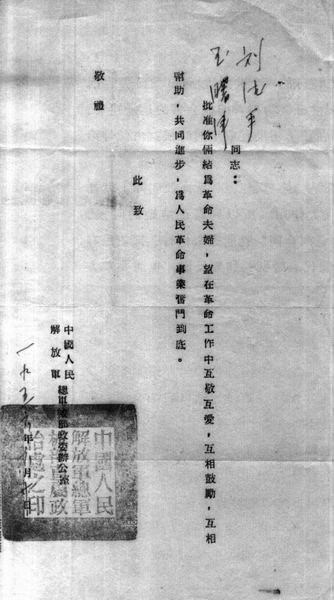 刘
玉
同志：
批准你倆結爲革命夫婦，望在革命工作中互敬互愛，互相鼓勵，互相
幇助，共同進步，爲人民革命事業奮鬥到底。
此致
敬禮
中國人民
解放軍
一九五 年 月 日
中國人民
解放軍總軍
政
治處之印